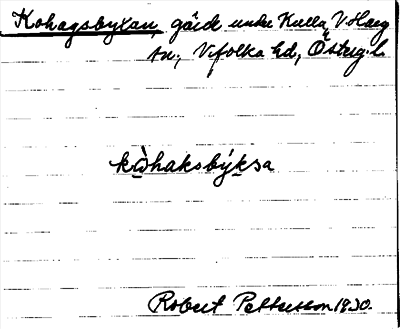 Kohagsbyxan, gärde under Kulla, V. Harg
sn, Vifolka hd, Österg. l.
kὼhaksbýksa
Robert Pettersson 1930.